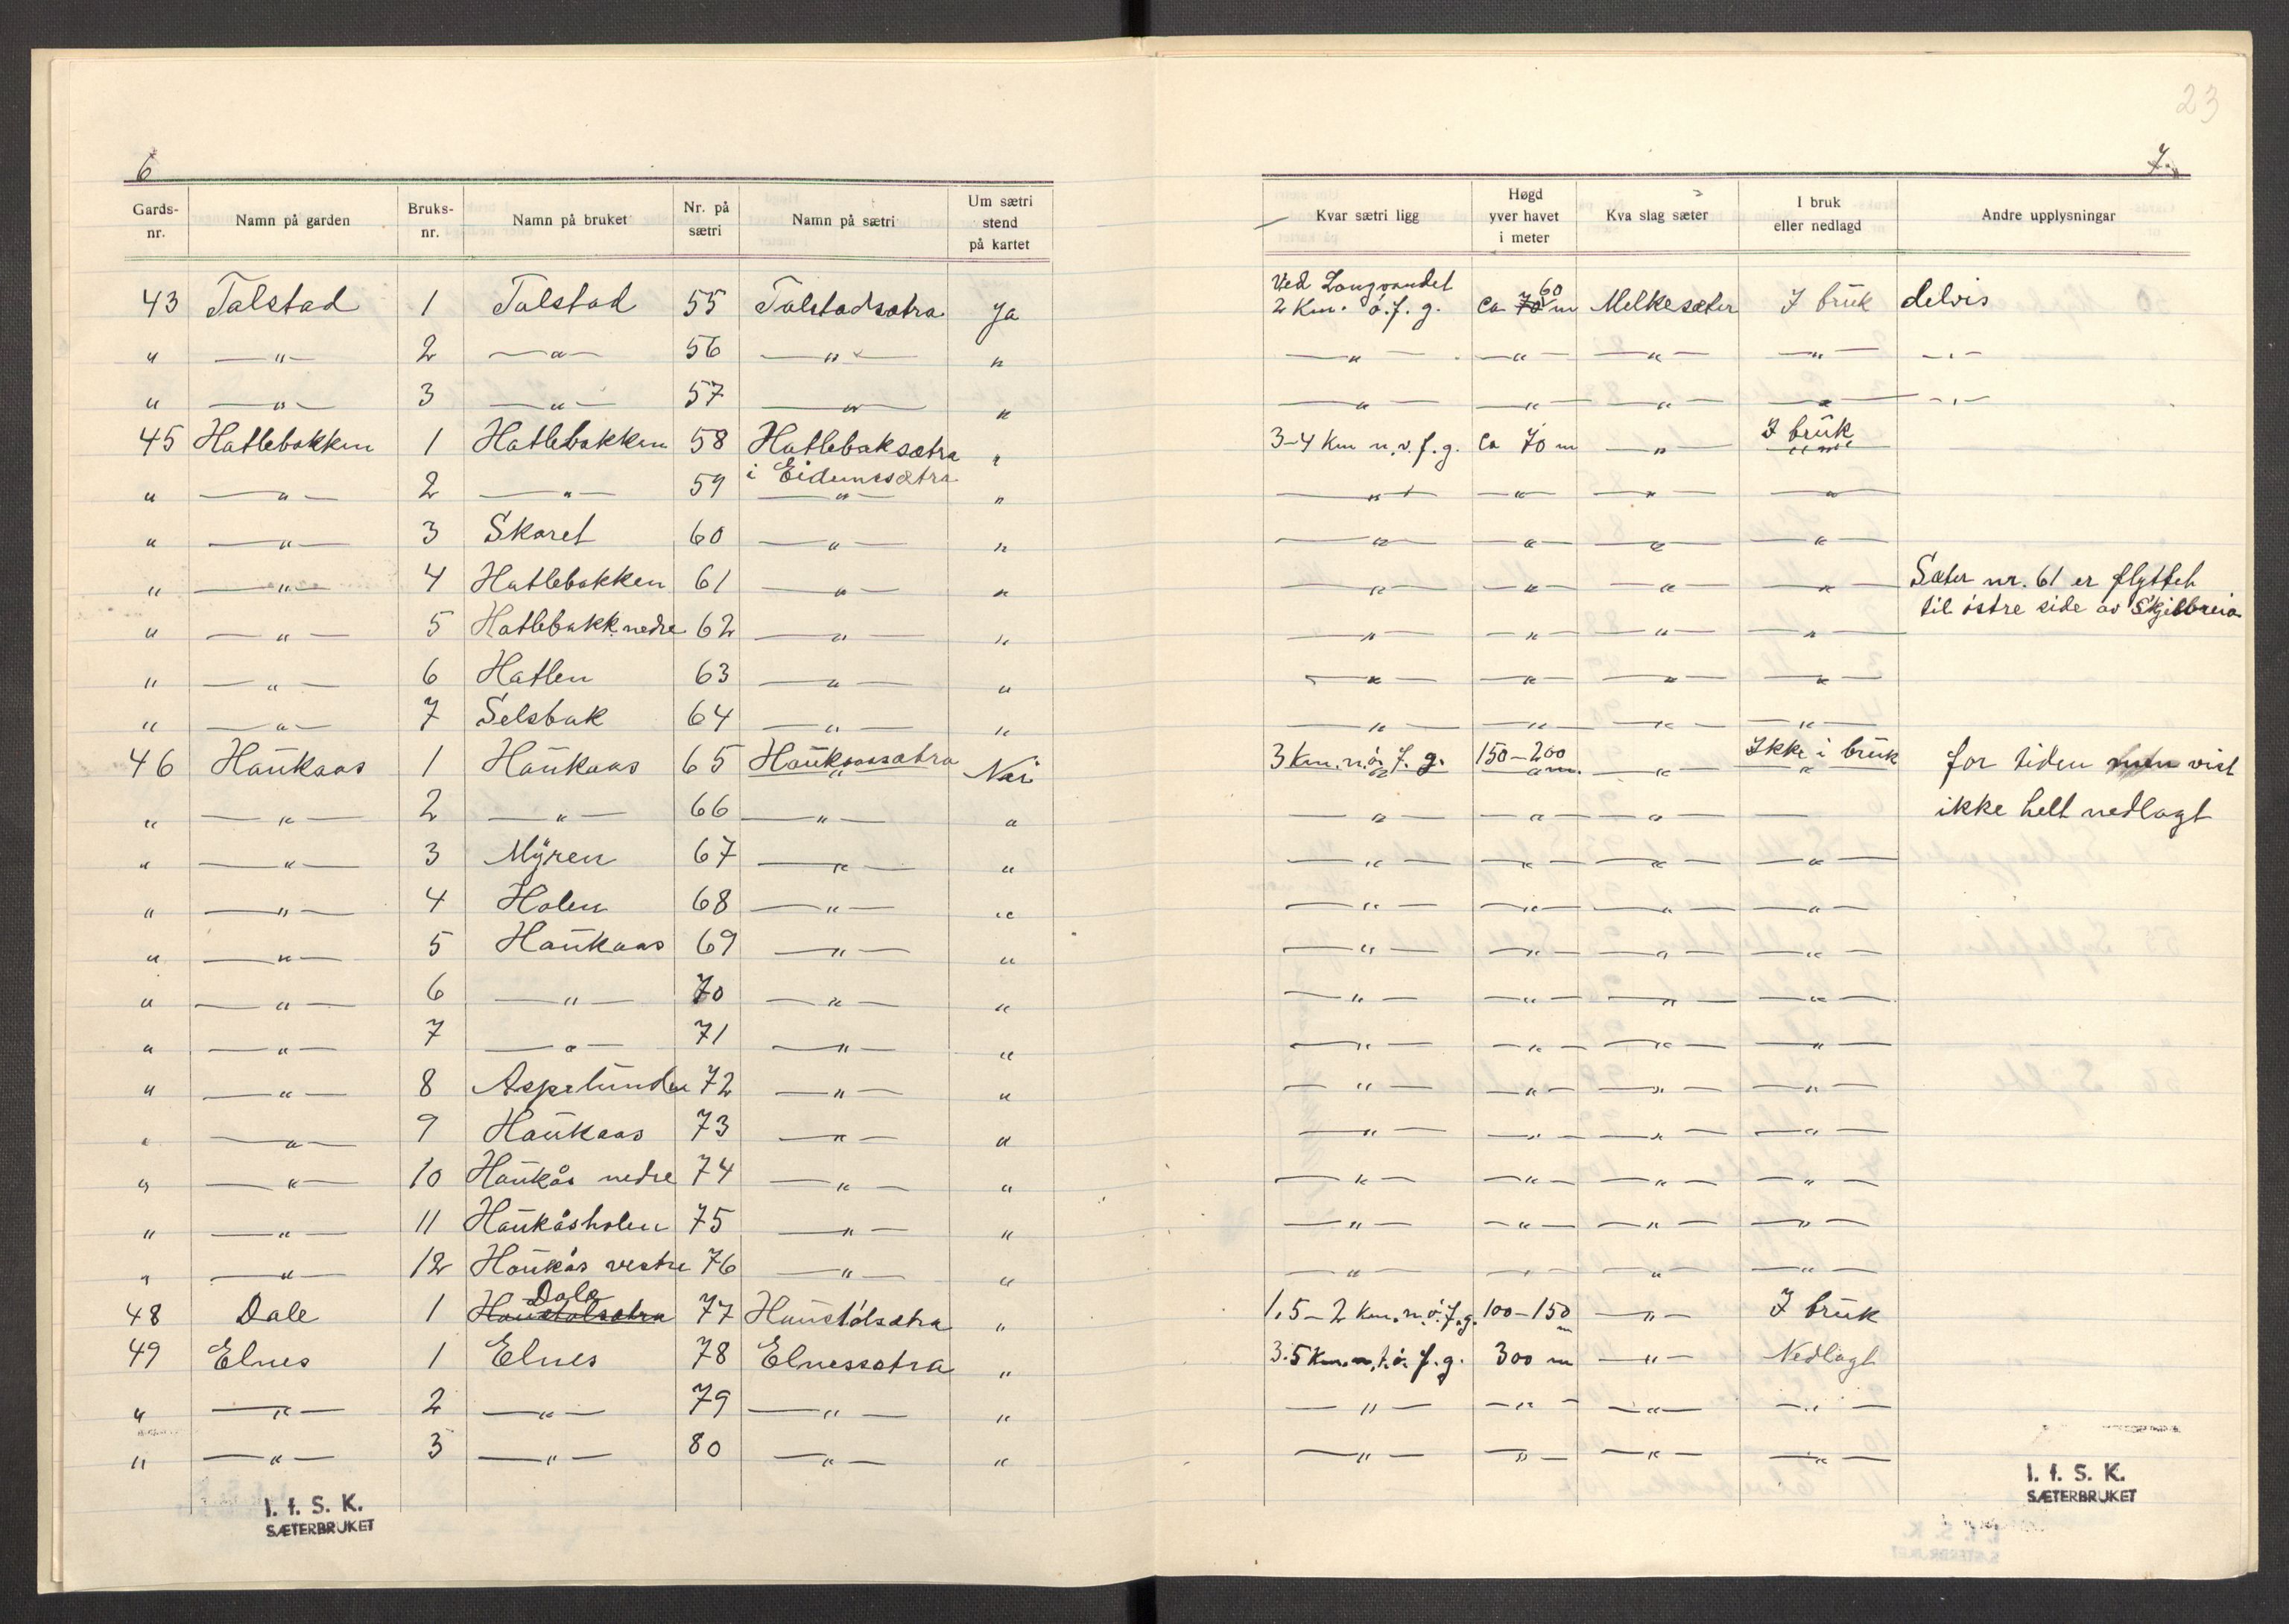 23
6
7
Gards-nr. Namn på garden Bruks-nr. Namn på bruket Nr. på sætri Namn på sætri Um sætri stend på kartet Kvar sætri ligg Høgd yver havet i meter Kva slag sæter I bruk eller nedlagd Andre upplysningar
43 Talstad 1 Talstad 55 Talstadsætra Ja Ved Langvandet 2 Km. ö. f. g. Ca 70 60 m Melkesæter I brük delvis
" —"— 2 —"— 56 —"— " —"— —"— —"— —"— —"—
" —"— 3 —"— 57 —"— " —"— —"— —"— —"— —"—
45 Hatlebakken 1 Hatlebakken 58 Hatlebaksætra " 3-4 Km n.v. f. g. Ca 70 m —"— I brük
" —"— 2 —"— 59 i Eidemssætra —"— " —"— —"— —"— —"—
" —"— 3 Skaret 60 —"— " —"— —"— —"— —"—
" —"— 4 Hatlebakken 61 —"— " —"— —"— —"— —"— Sæter nr. 61 er flyttet
" —"— 5 Hatlebakk nedre 62 —"— " —"— —"— —"— —"— til östre side av Skjelbreia
" —"— 6 Hatlen 63 —"— " —"— —"— —"— —"—
" —"— 7 Selsbak 64 —"— " —"— —"— —"— —"—
46 Haükaas 1 Haükaas 65 Haükaassætra Nei 3 Km. n.ö. f. g. 150-200 m. —"— Ikke i brük for tiden men vist
" —"— 2 —"— 66 —"— " —"— —"— —"— — ikke helt nedlagt
" —"— 3 Mÿren 67 —"— " —"— —"— —"— —"—
" —"— 4 Holen 68 —"— " —"— —"— —"— —"—
" —"— 5 Haükaas 69 —"— " —"— —"— —"— —"—
" —"— 6 —"— 70 —"— " —"— —"— —"— —"—
" —"— 7 —"— 71 —"— " —"— —"— —"— —"—
" —"— 8 Aspelünden 72 —"— " —"— —"— —"— —"—
" —"— 9 Haükaas 73 —"— " —"— —"— —"— —"—
" —"— 10 Haükås nedre 74 —"— " —"— —"— —"— —"—
" —"— 11 Haükåsholen 75 —"— " —"— —"— —"— —"—
" —"— 12 Haükås vestre 76 —"— " —"— —"— —"— —"—
48 Dale 1 Dale 77 Haustölsætra " 1,5-2 Km. n.ö. f. g. 100-150 m —"— I brük
49 Elnes 1 Elnes 78 Elnessætra " 3.5 Km. f. g. 300 m —"— Nedlagt
" —"— 2 —"— 79 —"— " —"— —"— —"— —"—
" —"— 3 —"— 80 —"— " —"— —"— —"— —"—
I. f. S. K.
SÆTERBRUKET
I. f. S. K.
SÆTERBRUKET